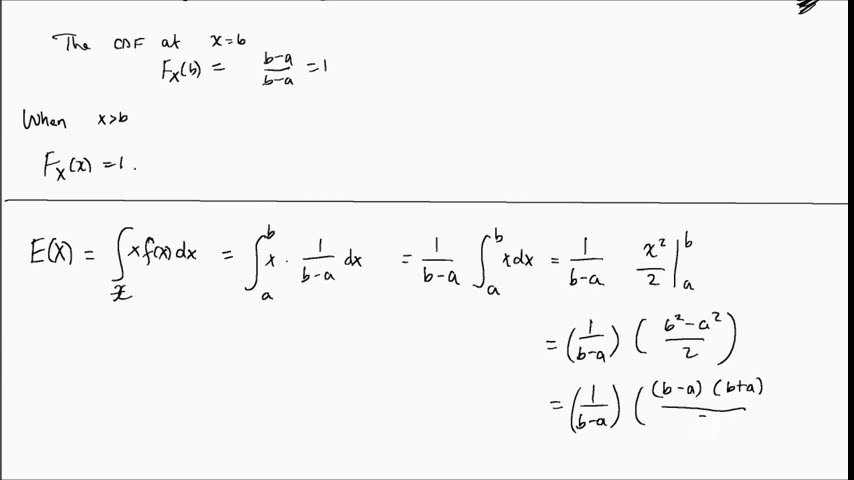 The CDF at x=b
F_X(b) = \frac{b-a}{b-a} = 1
When x>b
F_X(x) = 1.
E(X) = \int_x x f(x) dx = \int_a^b x \cdot \frac{1}{b-a} dx = \frac{1}{b-a} \int_a^b x dx = \frac{1}{b-a} \frac{x^2}{2} |_a^b
= (\frac{1}{b-a}) (\frac{b^2-a^2}{2})
= (\frac{1}{b-a}) (\frac{(b-a)(b+a)}{